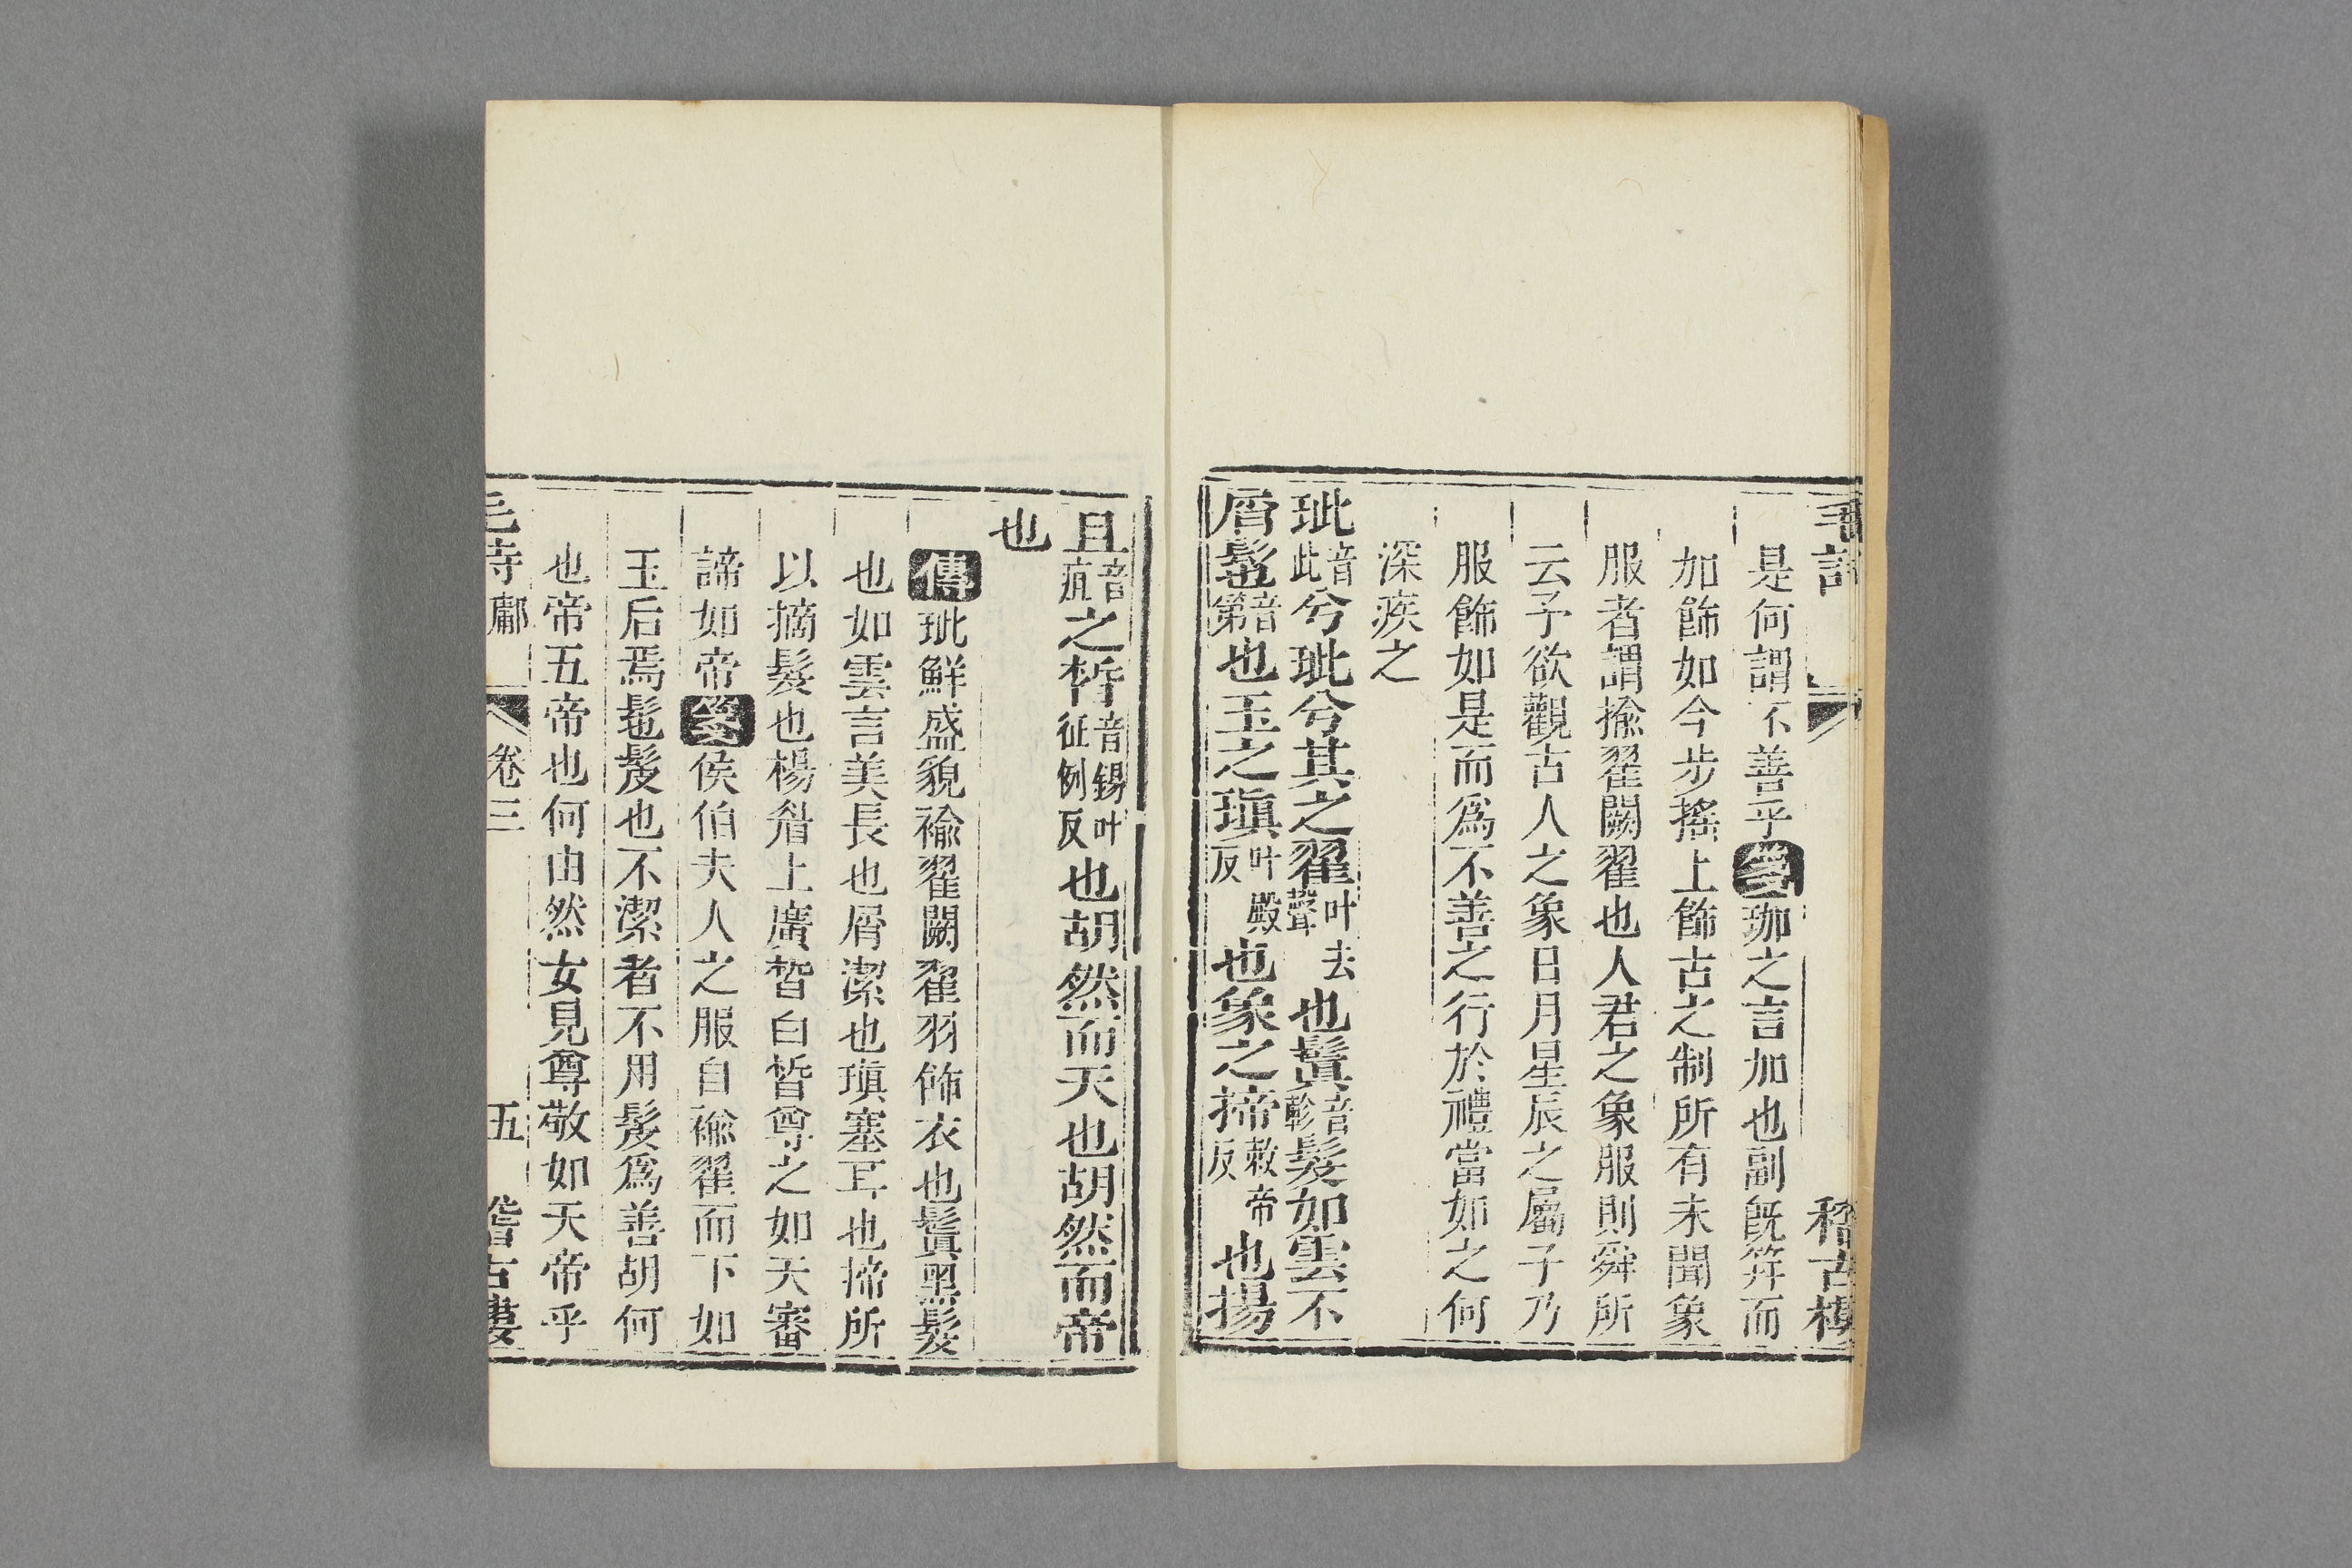 毛詩 稽古樓
是何謂不善乎箋珈之言加也副旣筓而
加飾如今步搖上飾古之制所有未聞象
服者謂揄翟闕翟也人君之象服則舜所
云予欲觀古人之象日月星辰之屬子乃
服飾如是而爲不善之行於禮當如之何
深疾之
玼音此兮玼兮其之翟叶去聲也鬒音軫髮如雲不
屑髢音第也玉之瑱叶殿反也象之揥敕帝反也揚
且音疽之皙音錫叶征例反也胡然而天也胡然而帝
也
傳玼鮮盛貌褕翟闕翟羽飾衣也鬒黑髮
也如雲言美長也屑潔也瑱塞耳也揥所
以摘髮也楊眉上廣皙白皙尊之如天審
諦如帝箋侯伯夫人之服自褕翟而下如
王后焉髢髲也不潔者不用髲爲善胡何
也帝五帝也何由然女見尊敬如天帝乎
毛詩鄘 卷三 五 稽古樓